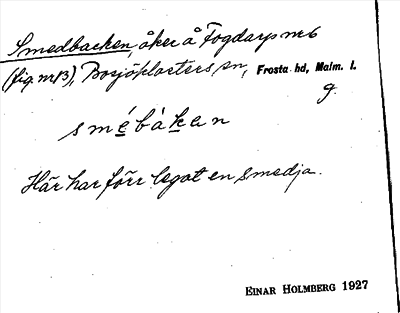 Smedbacken, åker å Fogdarp nr 6
(fig nr 13), Bosjöklosters sn, Frosta hd, Malm. l.
g.
smébákan
Här har förr legat en smedja.
EINAR HOLMBERG 1927